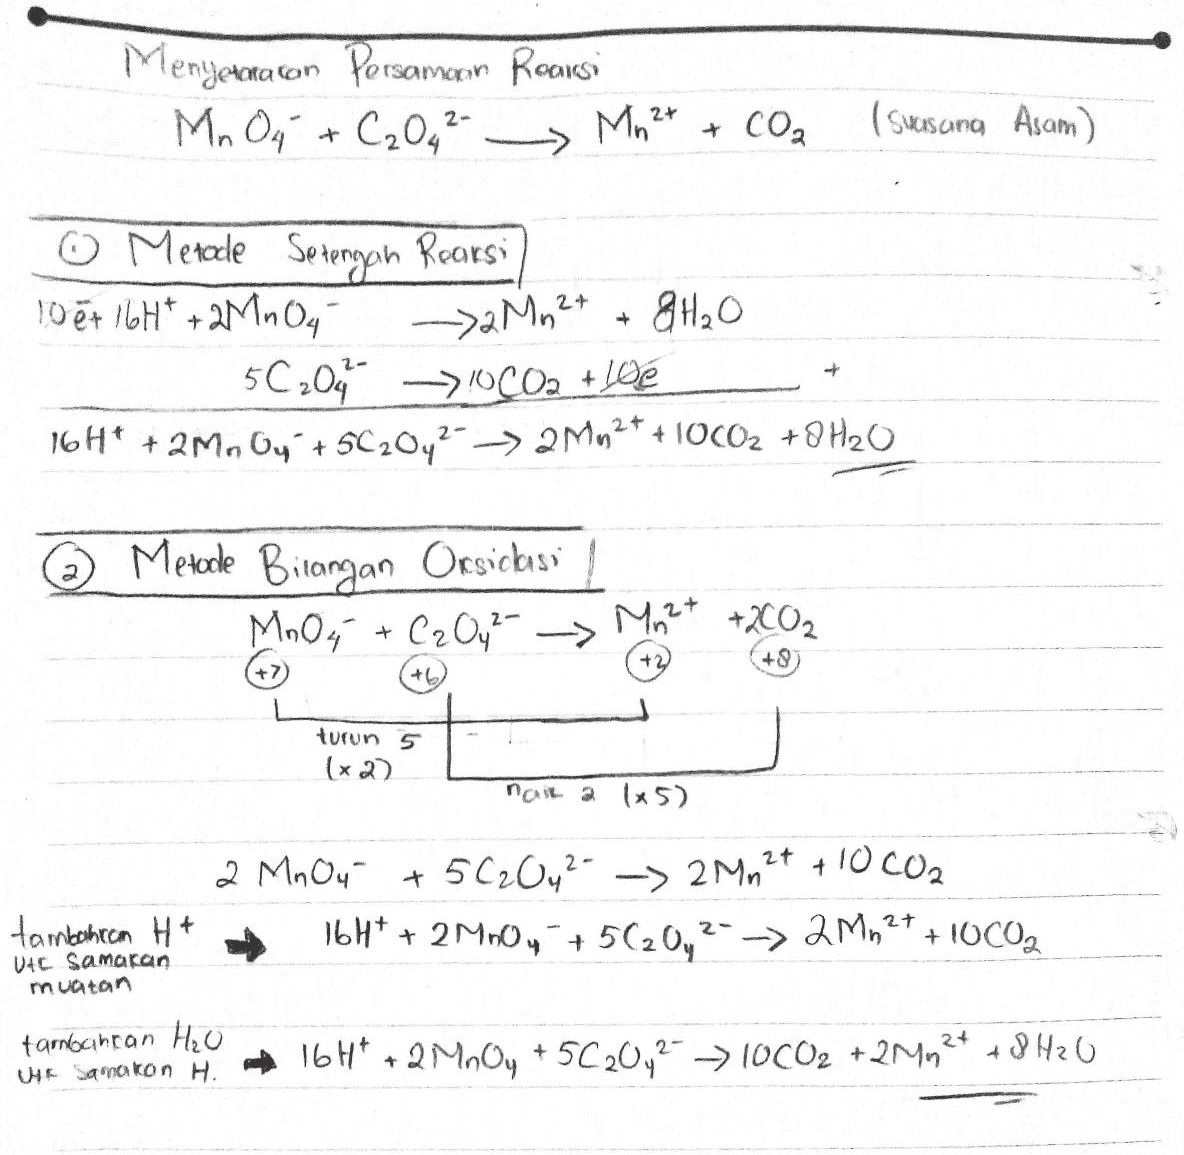 Menyetarakan Persamaan Reaksi
MnO₄⁻ + C₂O₄²⁻ → Mn²⁺ + CO₂ (Suasana Asam)
① Metode Setengah Reaksi
10e⁻ + 16H⁺ + 2MnO₄⁻ → 2Mn²⁺ + 8H₂O
5C₂O₄²⁻ → 10CO₂ + 10e +
16H⁺ + 2MnO₄⁻ + 5C₂O₄²⁻ → 2Mn²⁺ + 10CO₂ + 8H₂O
② Metode Bilangan Oksidasi
MnO₄⁻ + C₂O₄²⁻ → Mn²⁺ + 2CO₂
+7 +6 +2 +8
turun 5
(x2)
naik 2 (x5)
2 MnO₄⁻ + 5C₂O₄²⁻ → 2Mn²⁺ + 10CO₂
tambahkan H⁺ ➡ 16H⁺ + 2MnO₄⁻ + 5C₂O₄²⁻ → 2Mn²⁺ + 10CO₂
utk samakan
muatan
tambahkan H₂O
utk samakan H. ➡ 16H⁺ + 2MnO₄ + 5C₂O₄²⁻ → 10CO₂ + 2Mn²⁺ + 8H₂O